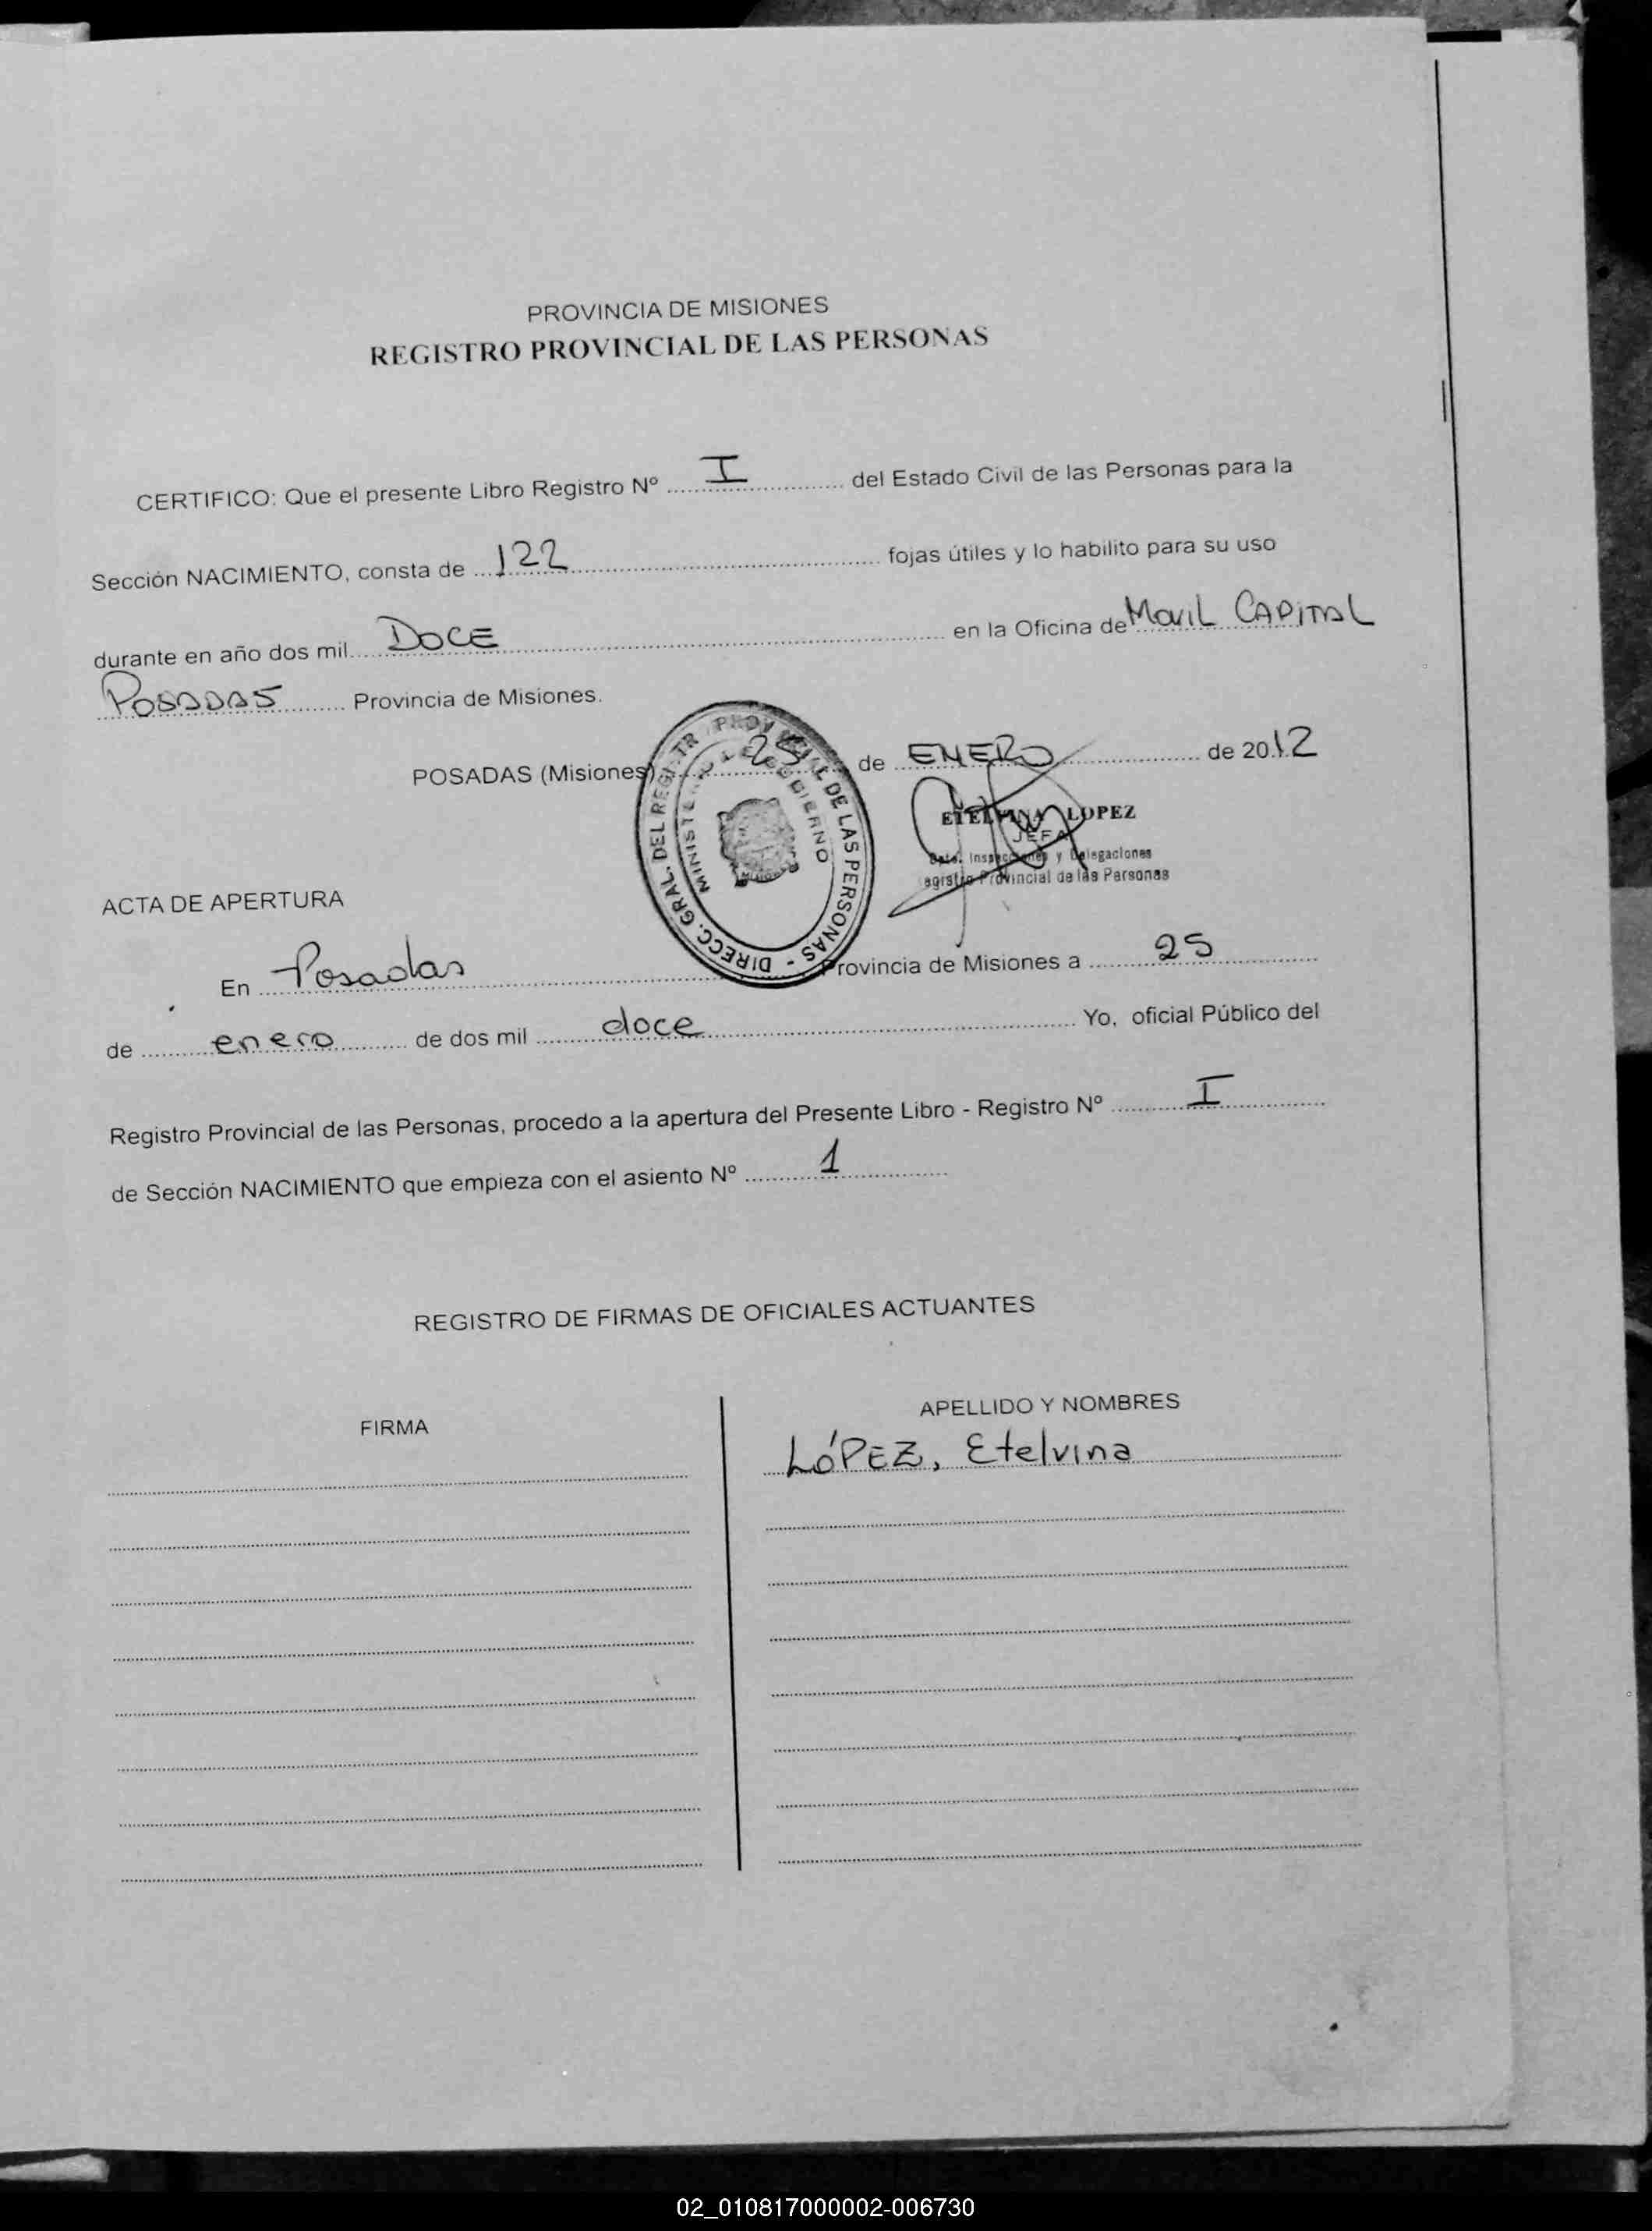 PROVINCIA DE MISIONES
REGISTRO PROVINCIAL DE LAS PERSONAS
CERTIFICO: Que el presente Libro Registro Nº I del Estado Civil de las Personas para la
Sección NACIMIENTO, consta de 122 fojas útiles y lo habilito para su uso
durante en año dos mil DOCE en la Oficina de MOVIL CAPITAL
POSADAS Provincia de Misiones.
POSADAS (Misiones) 25 de ENERO de 2012
DIRECC. GRAL. DEL REGISTR PROVINCIAL DE LAS PERSONAS -
MINISTERIO DE GOBIERNO
ETELVINA LOPEZ
JEFA
Dpto. Inspecciones y Delegaciones
egistro Provincial de las Personas
ACTA DE APERTURA
En Posadas Provincia de Misiones a 25
de enero de dos mil doce Yo, oficial Público del
Registro Provincial de las Personas, procedo a la apertura del Presente Libro - Registro Nº I
de Sección NACIMIENTO que empieza con el asiento Nº 1
REGISTRO DE FIRMAS DE OFICIALES ACTUANTES
FIRMA
APELLIDO Y NOMBRES
LÓPEZ, Etelvina
02_010817000002-006730